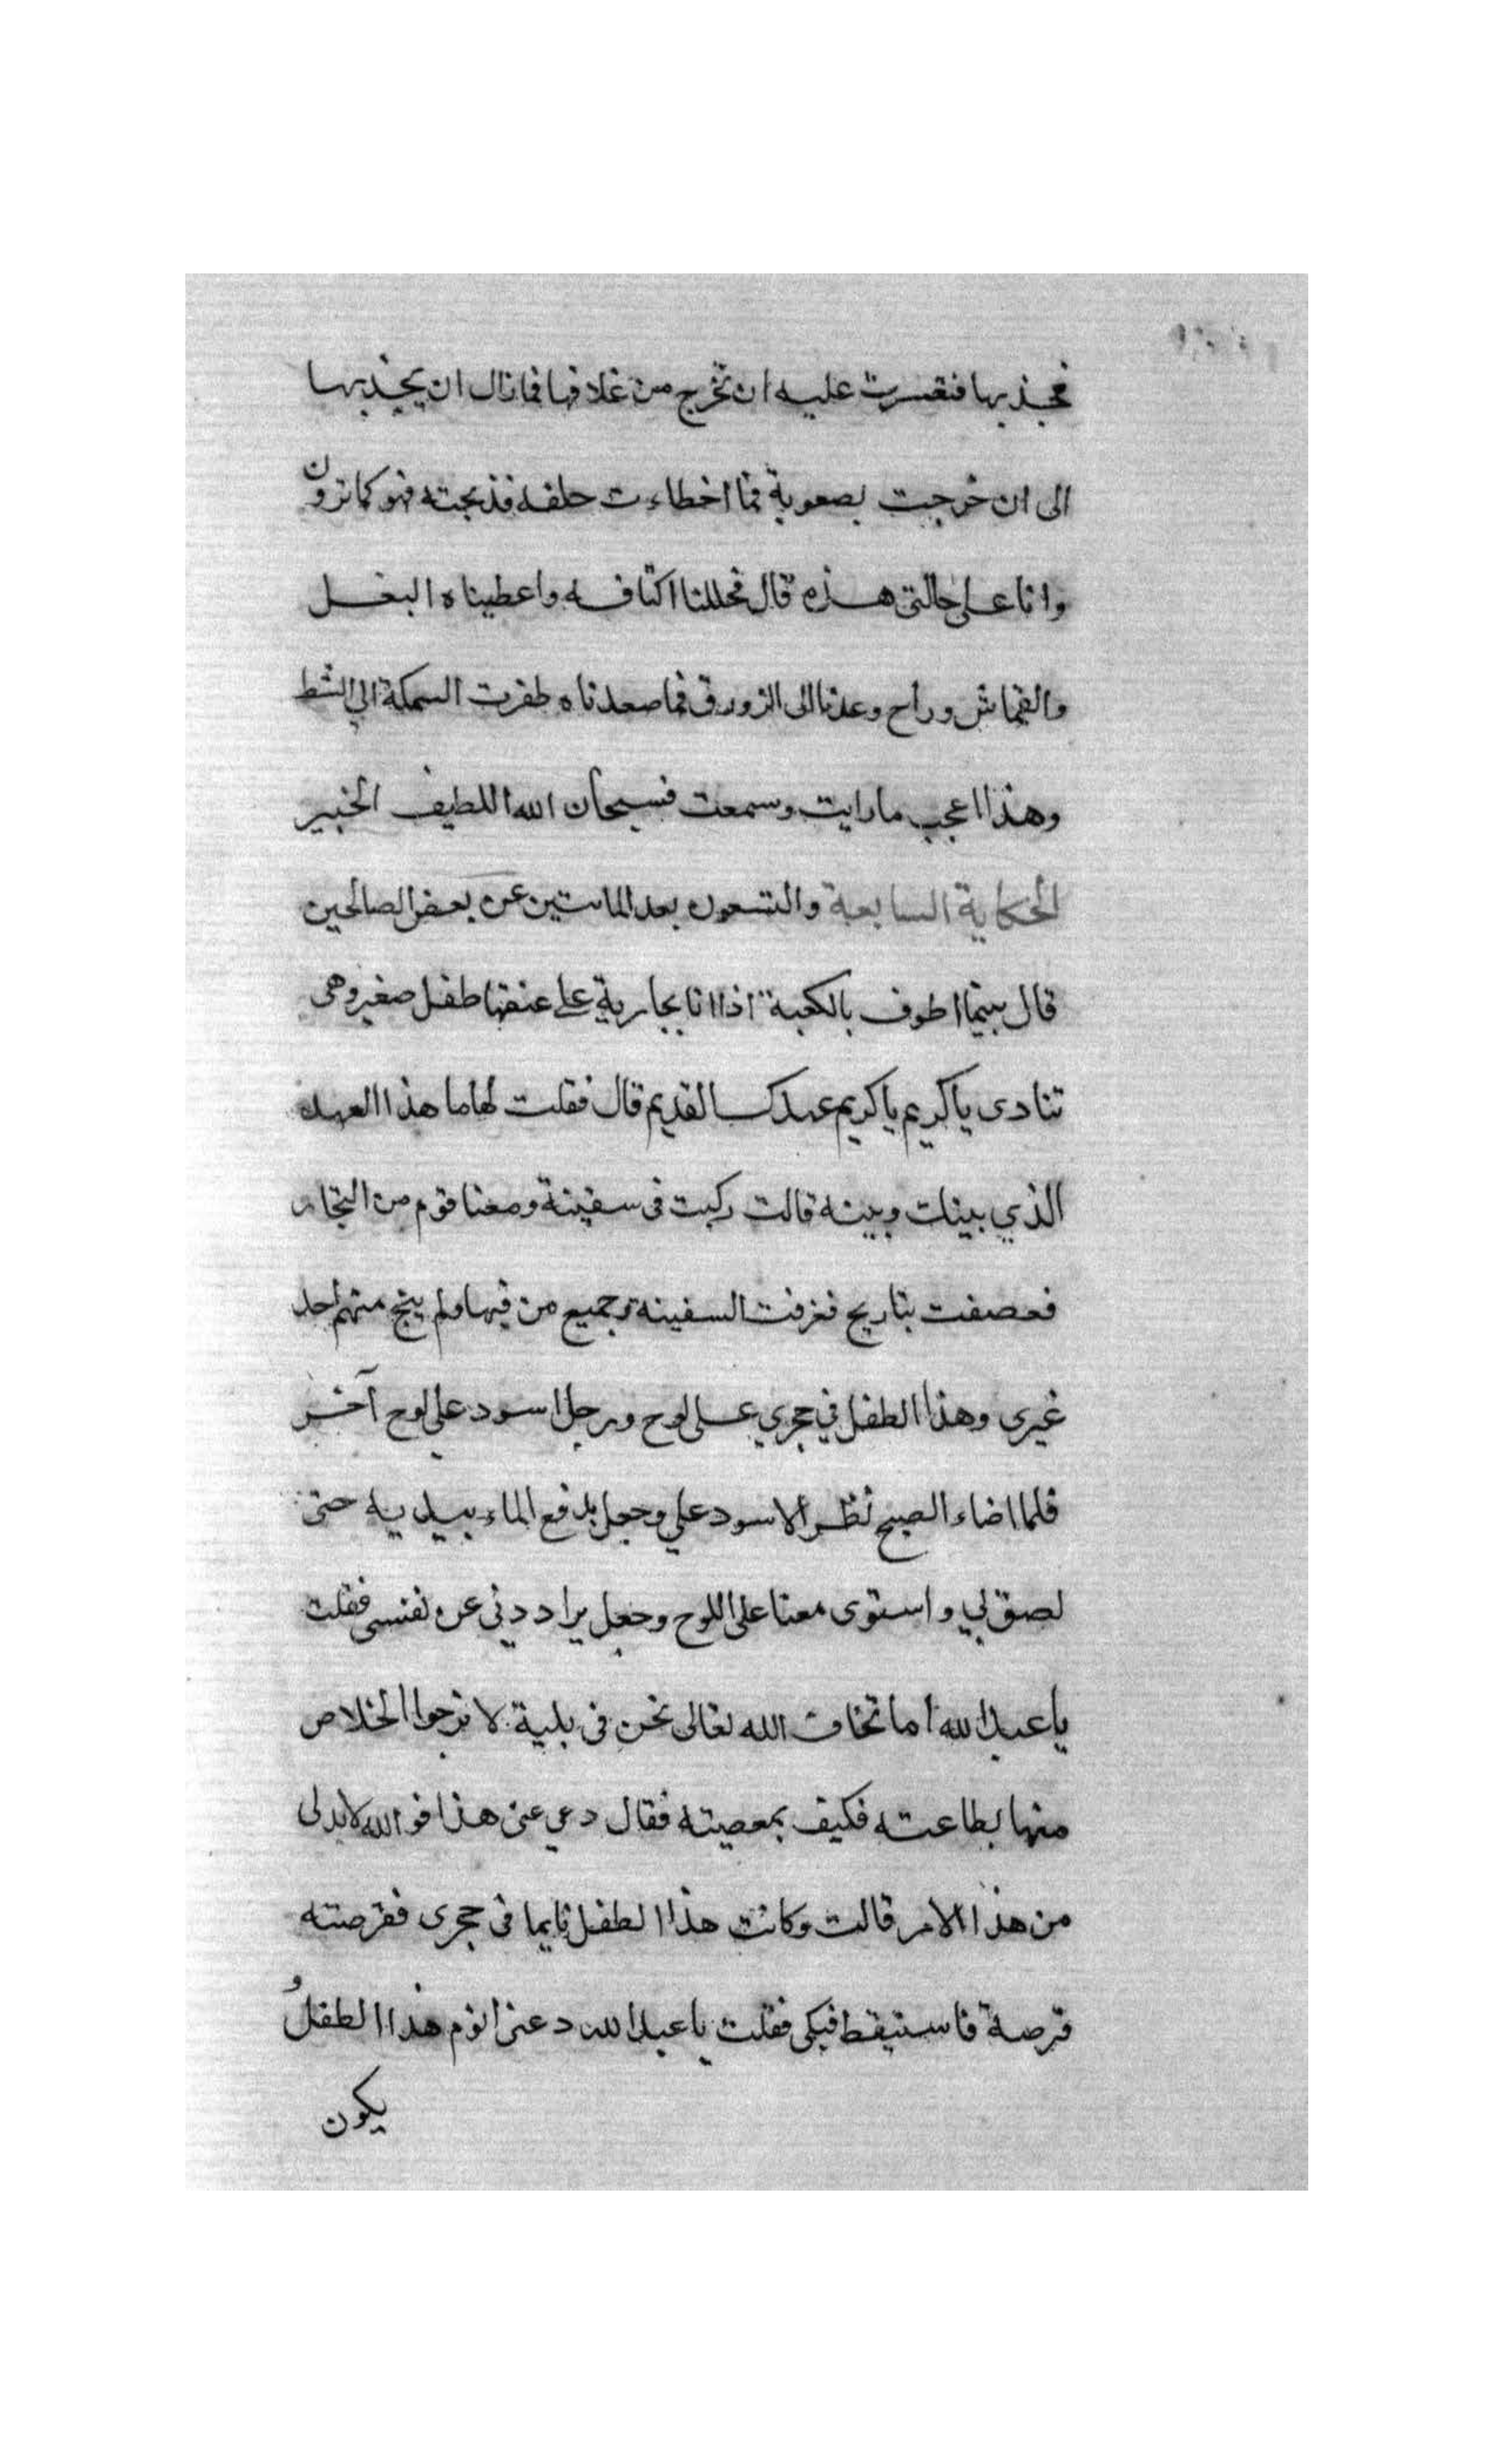 فجذبها فتعسرت عليه ان تخرج من غلافها فما زال ان يجذبها
الى ان خرجت بصعوبة فما اخطاءت حلقه فذبحته فهو كما ترون
وانا على حالتى هذه قال فحللنا اكتافه واعطيناه البغل
والقماش وراح وعدنا الى الزورق فما صعدناه طفرت السمكة الي الشط
وهذا اعجب ما رايت وسمعت فسبحان الله اللطيف الخبير
الحكاية السابعة والتسعون بعد الماتين عن بعض الصالحين
قال بينما اطوف بالكعبة اذا انا بجارية على عنقها طفل صغير وهى
تنادى يا كريم يا كريم عهدك القديم قال فقلت لها ما هذا العهد
الذي بينك وبينه قالت ركبت فى سفينة ومعنا قوم من التجار
فعصفت بنا ريح فغرفت السفينه وجميع من فيها ولم ينج منهم احد
غيرى وهذا الطفل في حجري على لوح ورجل اسود على لوح آخر
فلما اضاء الصبح نظر الاسود علي وجعل يدفع الماء بيديه حتى
لصق لي واستوى معنا على اللوح وجعل يراددنى عن نفسى فقلت
يا عبد الله اما تخاف الله تعالى نحن فى بلية لا نرجوا الخلاص
منها بطاعته فكيف بمعصيته فقال دعي عنى هذا فوالله لابد لى
من هذا الامر قالت وكانت هذا الطفل نايما فى حجرى فقرصته
قرصة فاستيقظ فبكى فقلت يا عبد الله دعنى انوم هذا الطفل و
يكون